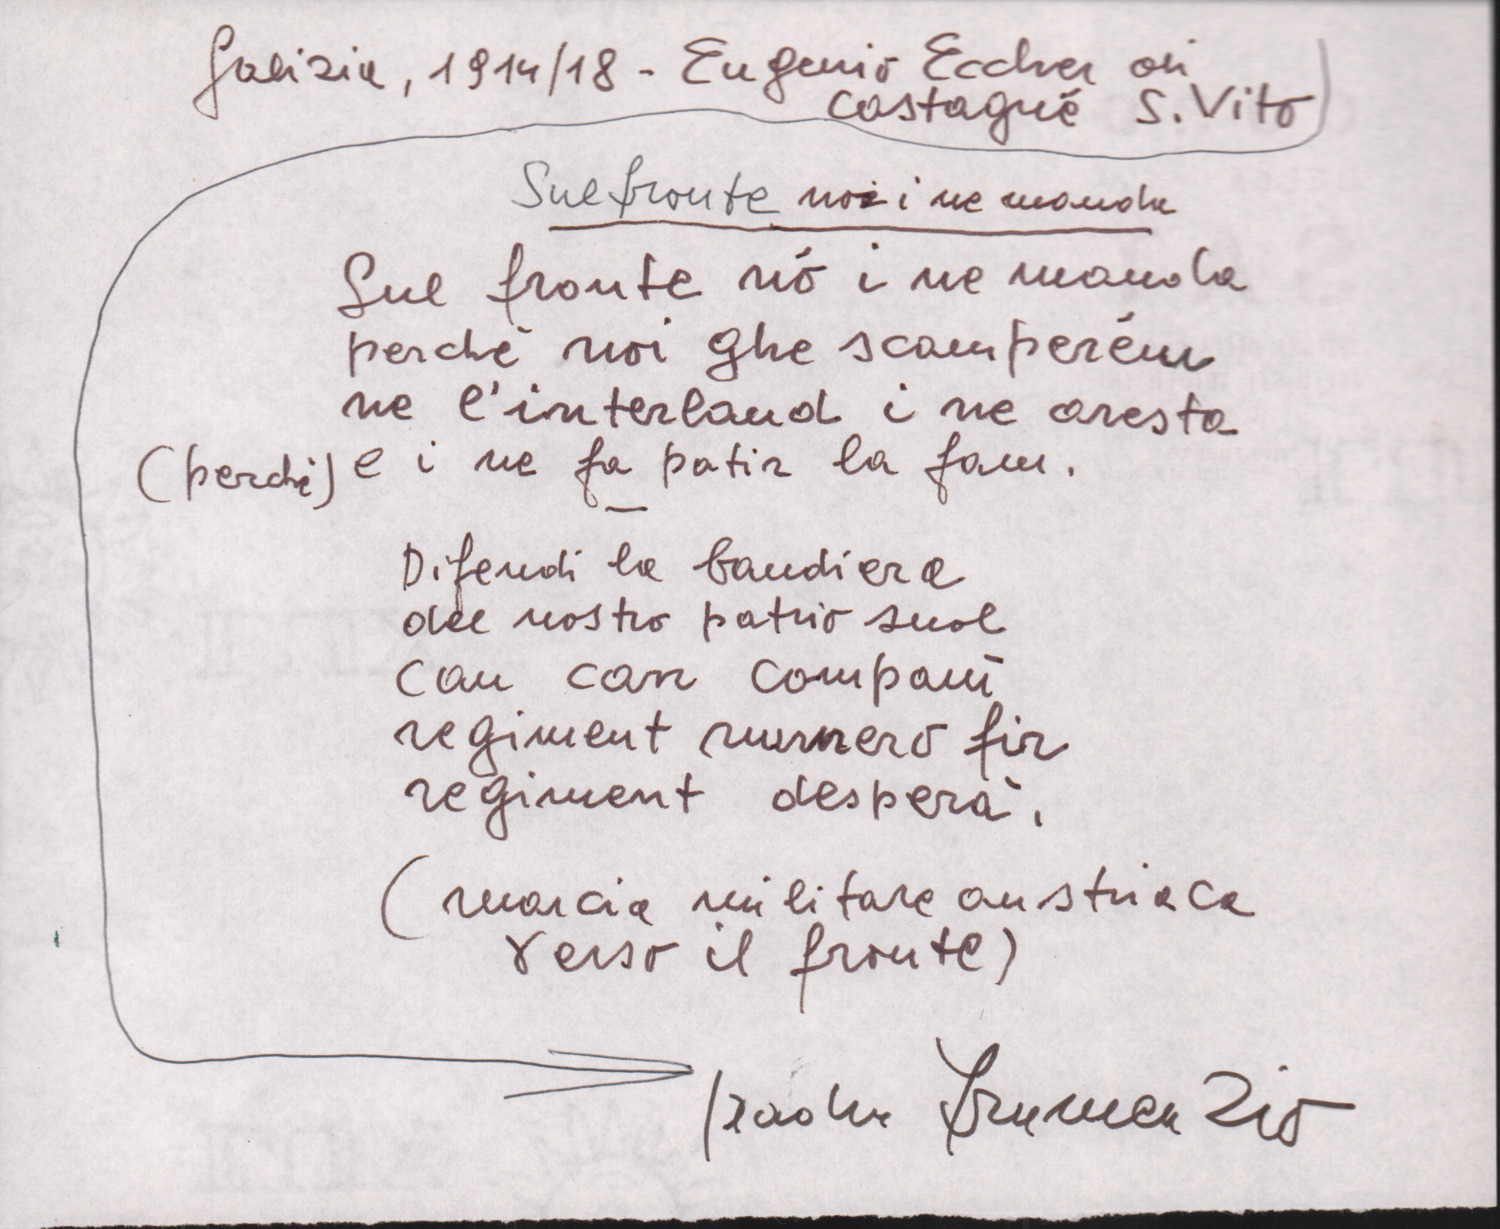 Galizia, 1914/18 - Eugenio Eccher di
Costagnè S. Vito
Sul fronte noi i ne manda
Sul fronte nó i ne manda
perchè noi ghe scamperém
ne l'interland i ne aresta
(perchè) e i ne fa patir la fam.
Difendi la bandiera
del nostro patrio suol
can can compani
regiment numero fir
regiment desperà.
(marcia militare austriaca
verso il fronte)